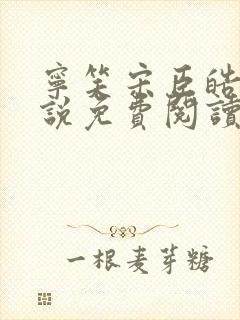 寧笙宋臣皓
說免費閱讀
一根麦芽糖